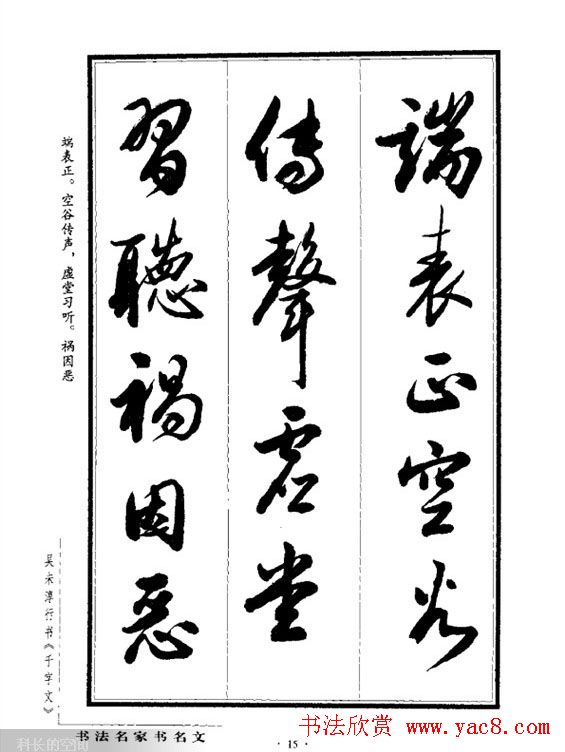 端表正空谷
傳聲虛堂
習聽禍因惡
端表正。空谷传声，虚堂习听。祸因恶
吴未淳行书《千字文》
书法名家书名文
·15·
书法欣赏 www.yac8.com
科长的空间